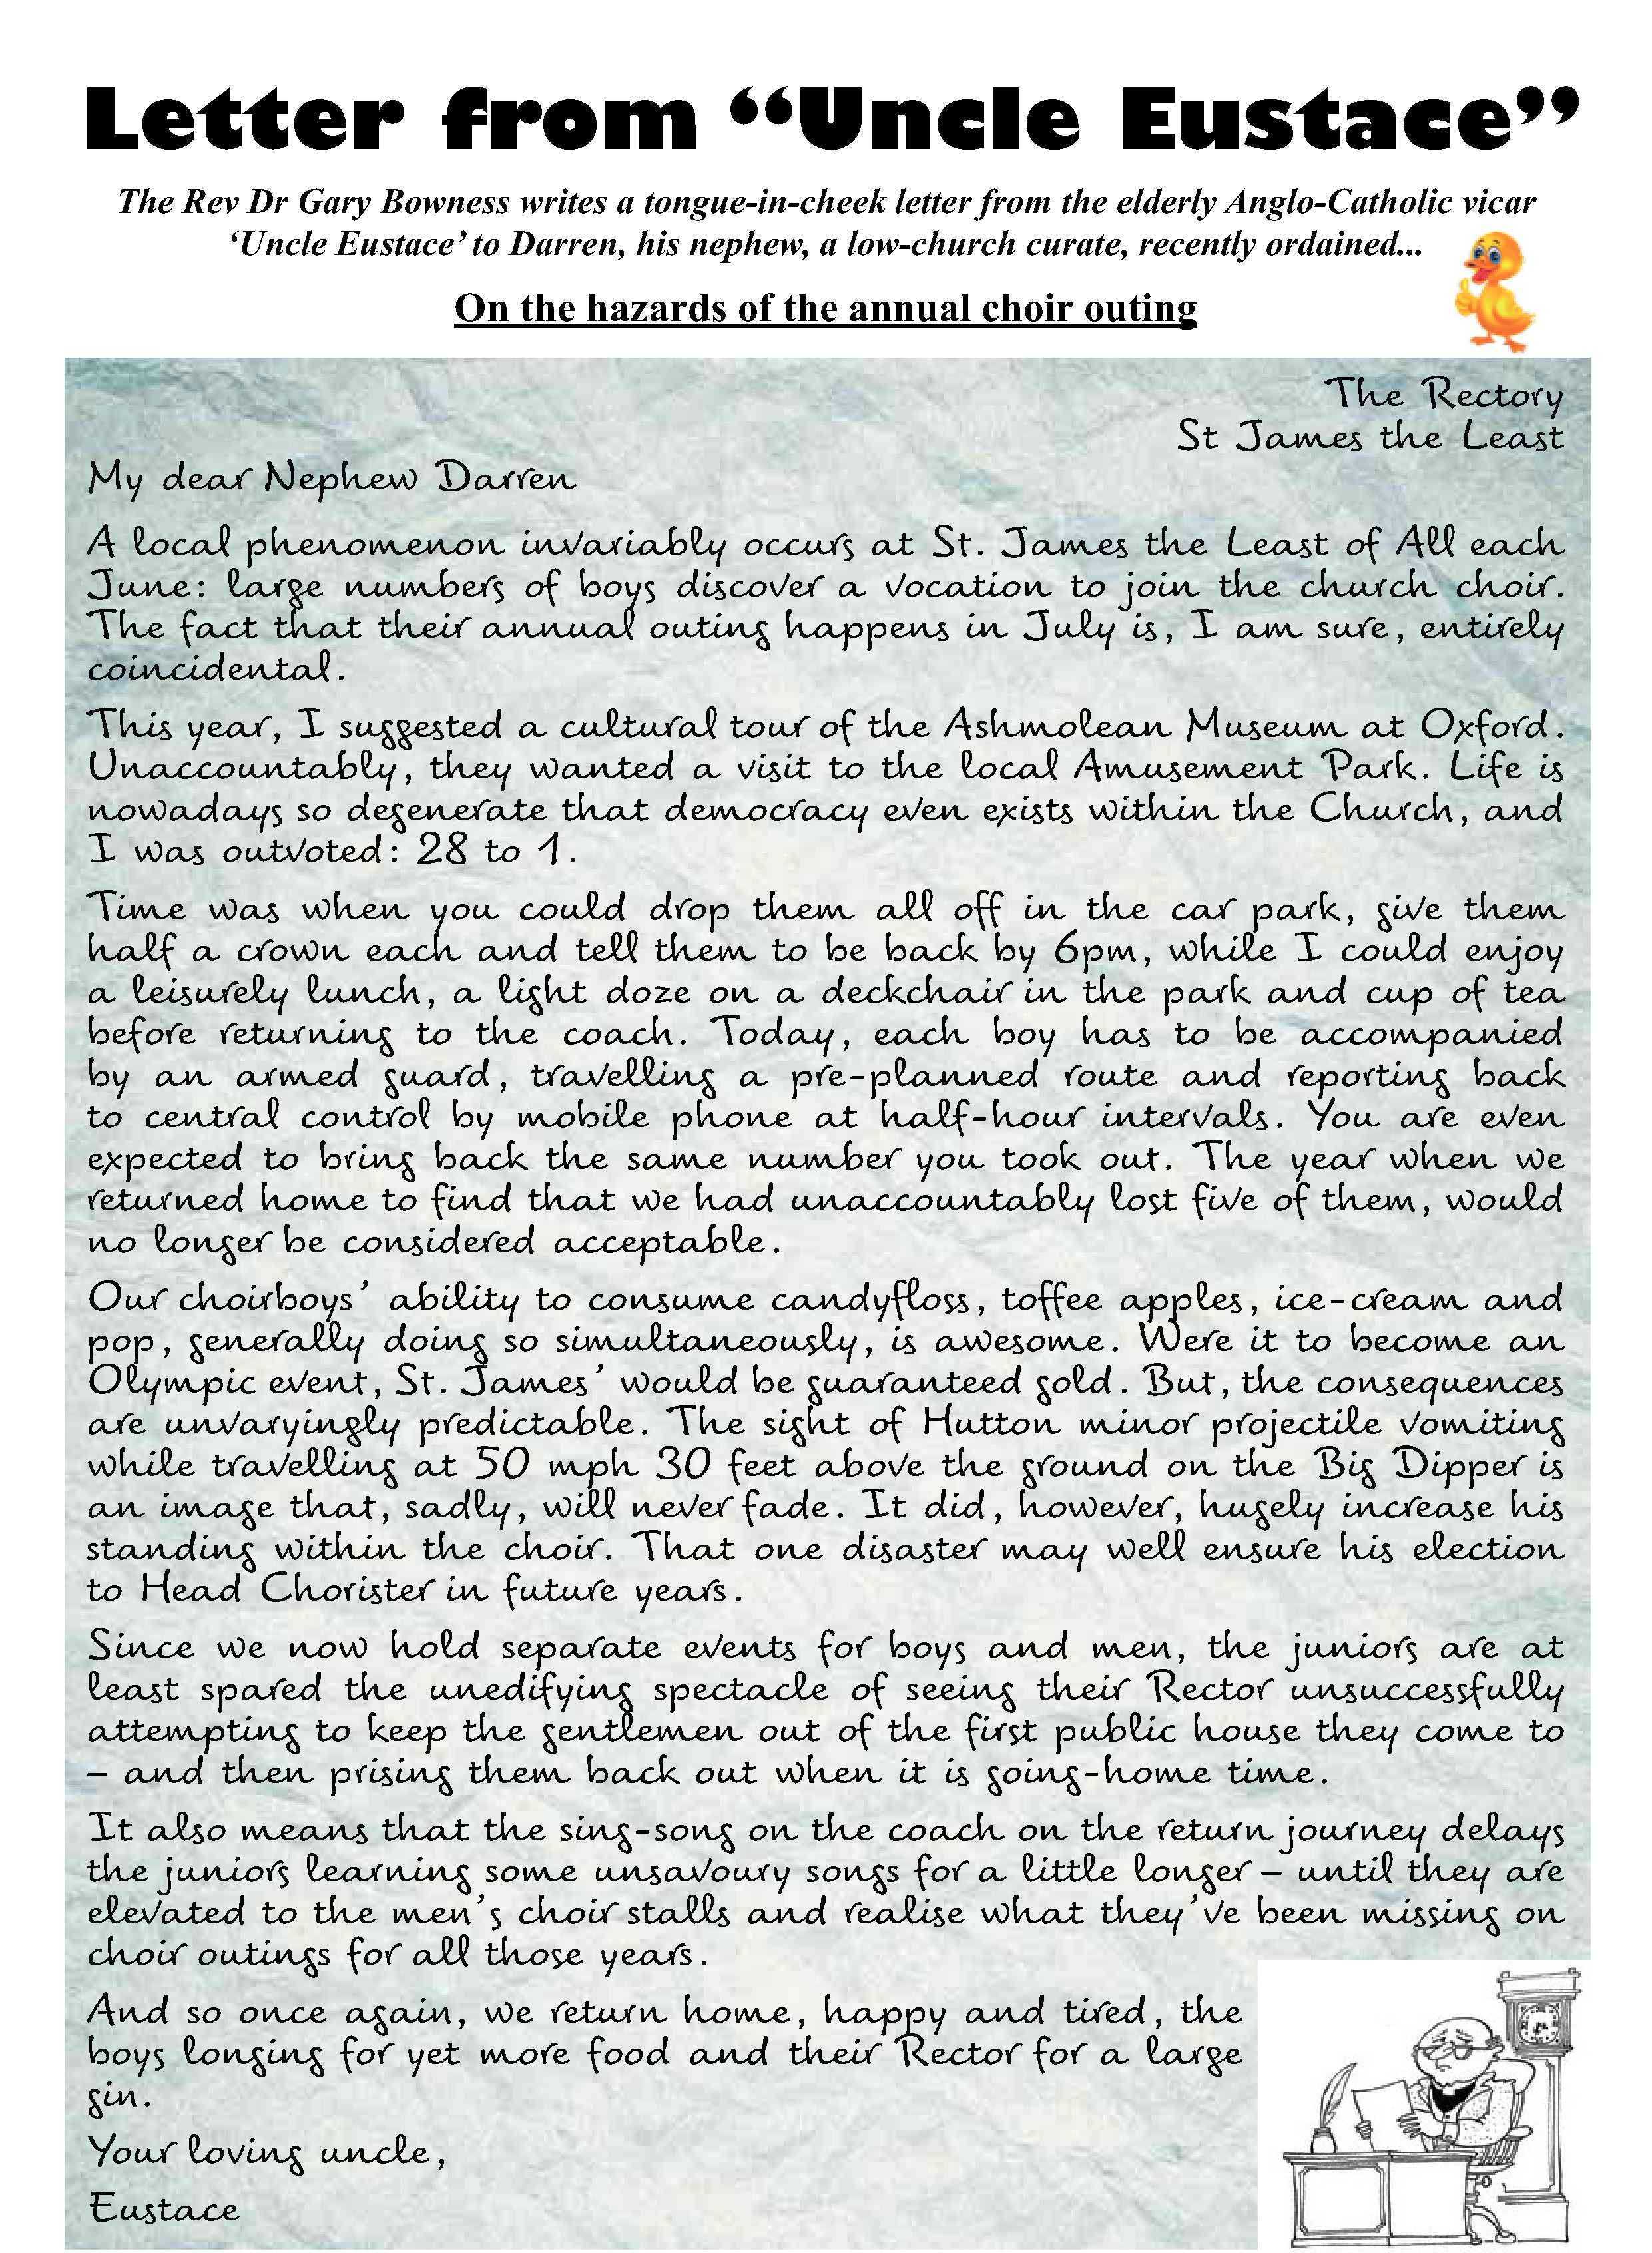 Letter from “Uncle Eustace”
The Rev Dr Gary Bowness writes a tongue-in-cheek letter from the elderly Anglo-Catholic vicar
‘Uncle Eustace’ to Darren, his nephew, a low-church curate, recently ordained...
On the hazards of the annual choir outing
The Rectory
St James the Least
My dear Nephew Darren
A local phenomenon invariably occurs at St. James the Least of All each
June: large numbers of boys discover a vocation to join the church choir.
The fact that their annual outing happens in July is, I am sure, entirely
coincidental.
This year, I suggested a cultural tour of the Ashmolean Museum at Oxford.
Unaccountably, they wanted a visit to the local Amusement Park. Life is
nowadays so degenerate that democracy even exists within the Church, and
I was outvoted: 28 to 1.
Time was when you could drop them all off in the car park, give them
half a crown each and tell them to be back by 6pm, while I could enjoy
a leisurely lunch, a light doze on a deckchair in the park and cup of tea
before returning to the coach. Today, each boy has to be accompanied
by an armed guard, travelling a pre-planned route and reporting back
to central control by mobile phone at half-hour intervals. You are even
expected to bring back the same number you took out. The year when we
returned home to find that we had unaccountably lost five of them, would
no longer be considered acceptable.
Our choirboys’ ability to consume candyfloss, toffee apples, ice-cream and
pop, generally doing so simultaneously, is awesome. Were it to become an
Olympic event, St. James’ would be guaranteed gold. But, the consequences
are unvaryingly predictable. The sight of Hutton minor projectile vomiting
while travelling at 50 mph 30 feet above the ground on the Big Dipper is
an image that, sadly, will never fade. It did, however, hugely increase his
standing within the choir. That one disaster may well ensure his election
to Head Chorister in future years.
Since we now hold separate events for boys and men, the juniors are at
least spared the unedifying spectacle of seeing their Rector unsuccessfully
attempting to keep the gentlemen out of the first public house they come to
– and then prising them back out when it is going-home time.
It also means that the sing-song on the coach on the return journey delays
the juniors learning some unsavoury songs for a little longer – until they are
elevated to the men’s choir stalls and realise what they’ve been missing on
choir outings for all those years.
And so once again, we return home, happy and tired, the
boys longing for yet more food and their Rector for a large
gin.
Your loving uncle,
Eustace